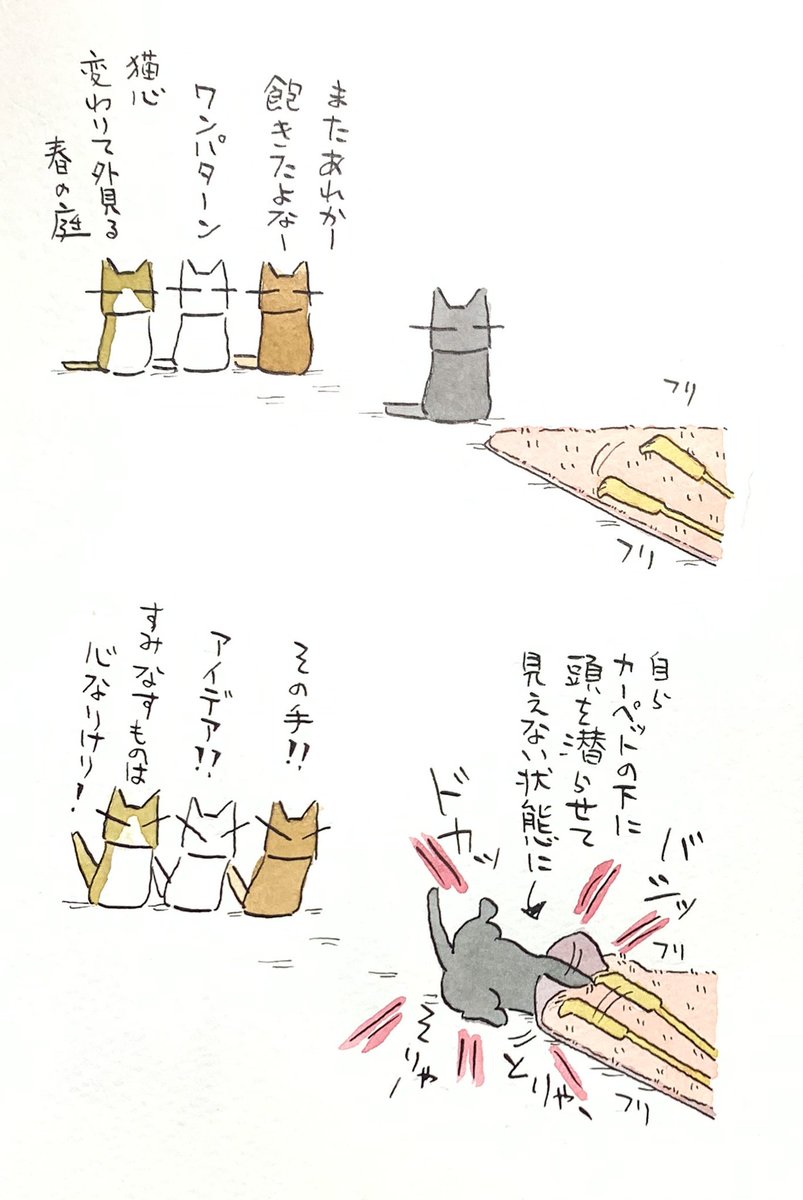 またあれかー
飽きたよなー
ワンパターン
猫心
変わりて外見る
春の庭
フリ
フリ
自ら
カーペットの下に
頭を潜らせて
見えない状態に
その手!!
アイデア!!
すみなすものは
心なりけり!
ドカッ
バシッ
フリ
そりゃー
とりゃ、
フリ